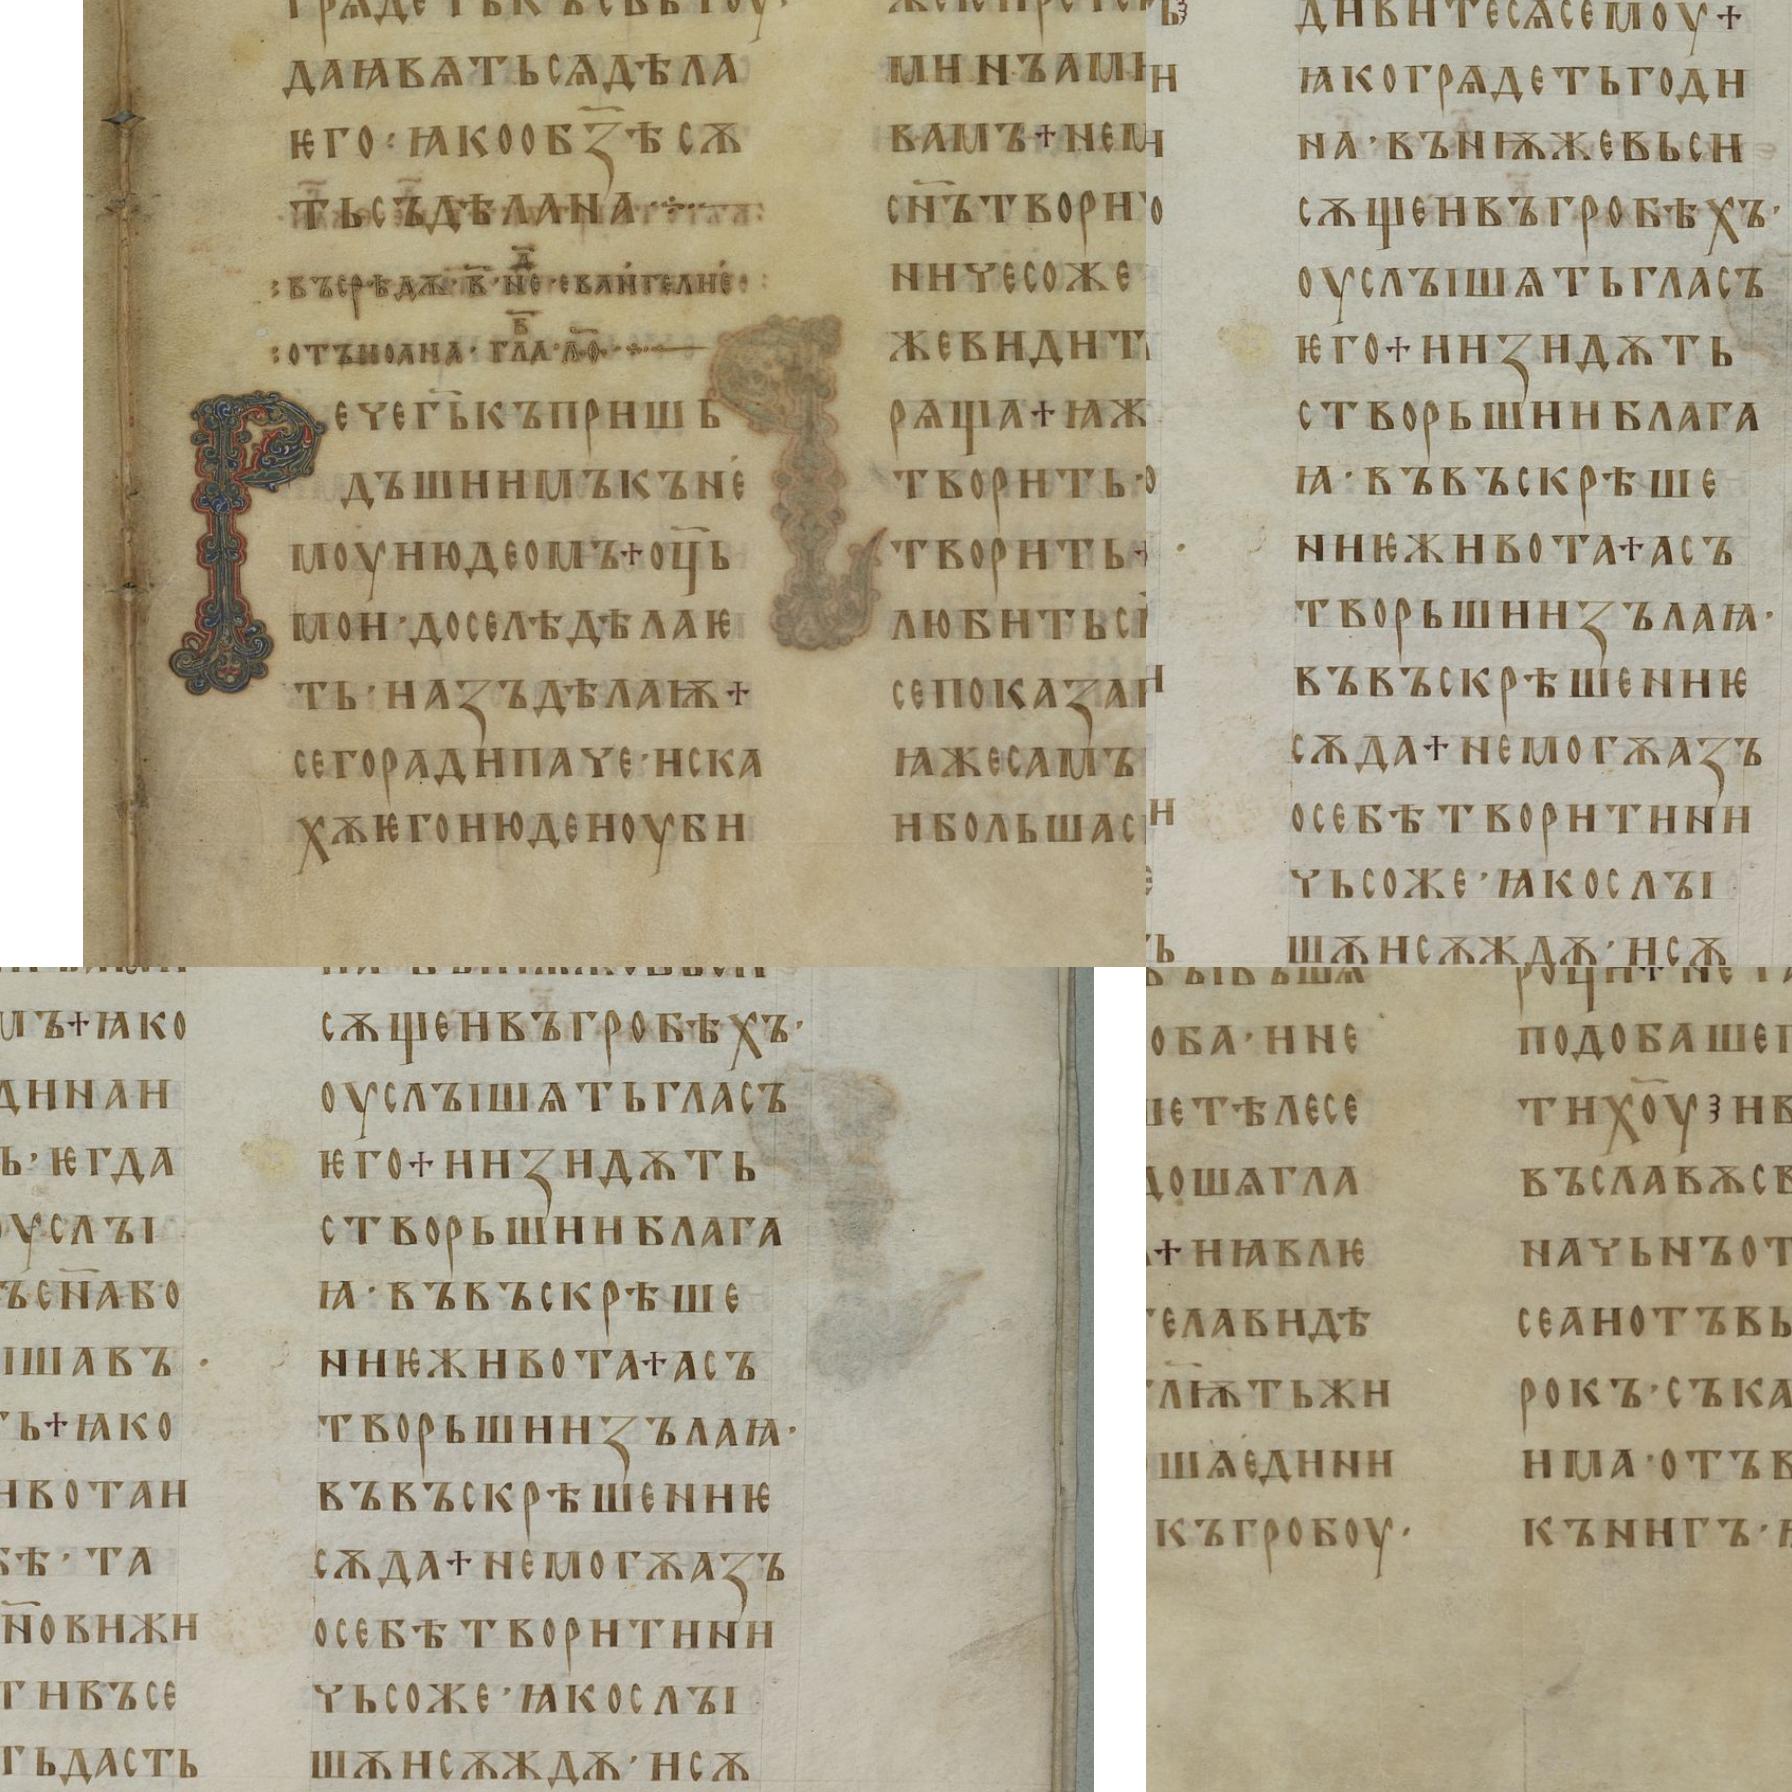 ДАꙖВѦТЬСѦДѢЛА
ѤГО:ꙖКООБꙀ҃ѢСѪ
ТЬСЪДѢЛАНА
:ВЪСРѢДѪ·В҃·НЕ·Д҃·ЕВАНГЕЛИЕ:
:ОТЪИОАНА·ГЛА·Б҃·Л҃О·
РЕЧЕГ҃ЬКЪПРИШЬ
ДЪШИИМЪКЪНЕ
МОУИЮДЕОМЪ+ОЦ҃Ь
МОИ·ДОСЕЛѢДѢЛАѤ
ТЬ·ИАꙀЪДѢЛАѬ+
СЕГОРАДИПАЧЕ·ИСКА
ХѪѤГОИЮДЕИОУБИ
МИНЪАМ
ВАМЪ+НЕМ
СН҃ЪТВОРИ
НИЧЕСОЖЕ
ЖЕВИДИТ
РѦЩА+ꙖЖ
ТВОРИТЬ·
ТВОРИТЬ+
ЛЮБИТЬС
СЕПОКАꙀА
ꙖЖЕСАМЪ
ИБОЛЬШАС
ДИВИТЕСѦСЕМОУ+
ꙖКОГРѦДЕТЬГОДИ
НА·ВЪНѬЖЕВЬСИ
СѪЩЕИВЪГРОБѢХЪ·
ОУСЛЪIШѦТЬГЛАСЪ
ѤГО+ИИꙀИДѪТЬ
СТВОРЬШИИБЛАГА
Ꙗ·ВЪВЪСКРѢШЕ
НИѤЖИВОТА+АСЪ
ТВОРЬШИИꙀЪЛАꙖ·
ВЪВЪСКРѢШЕНИѤ
СѪДА+НЕМОГѪАꙀЪ
ОСЕБѢТВОРИТИНИ
ЧЬСОЖЕ·ꙖКОСЛЪI
ШѪИСѪЖДѪ·ИСѪ
МЪ+ꙖКО
ДИНАИ
Ь·ѤГДА
ОУСЛЪI
ЪСН҃АБО
IШАВЪ
ТЬ+ꙖКО
ИВОТАИ
БѢ·ТА
Н҃ОВИЖИ
ТИВЪСЕ
ТЬДАСТЬ
СѪЩЕИВЪГРОБѢХЪ·
ОУСЛЪIШѦТЬГЛАСЪ
ѤГО+ИИꙀИДѪТЬ
СТВОРЬШИИБЛАГА
Ꙗ·ВЪВЪСКРѢШЕ
НИѤЖИВОТА+АСЪ
ТВОРЬШИИꙀЪЛАꙖ·
ВЪВЪСКРѢШЕНИѤ
СѪДА+НЕМОГѪАꙀЪ
ОСЕБѢТВОРИТИНИ
ЧЬСОЖЕ·ꙖКОСЛЪI
ШѪИСѪЖДѪ·ИСѪ
ОБА·ИНЕ
ШЕТѢЛЕСЕ
ДОШѦГЛА
+ИꙖВЛѤ
ГЕЛАВИДѢ
ГЛ҃ѬТЬЖИ
ШѦЕДИНИ
КЪГРОБОУ·
ПОДОБАШЕ
ТИХ҃ОУꙁИВ
ВЪСЛАВѪСВ
НАЧЬНЪОТ
СЕАИОТЪВЬ
РОКЪ·СЪКА
ИМА·ОТЪВ
КЪНИГЪ·